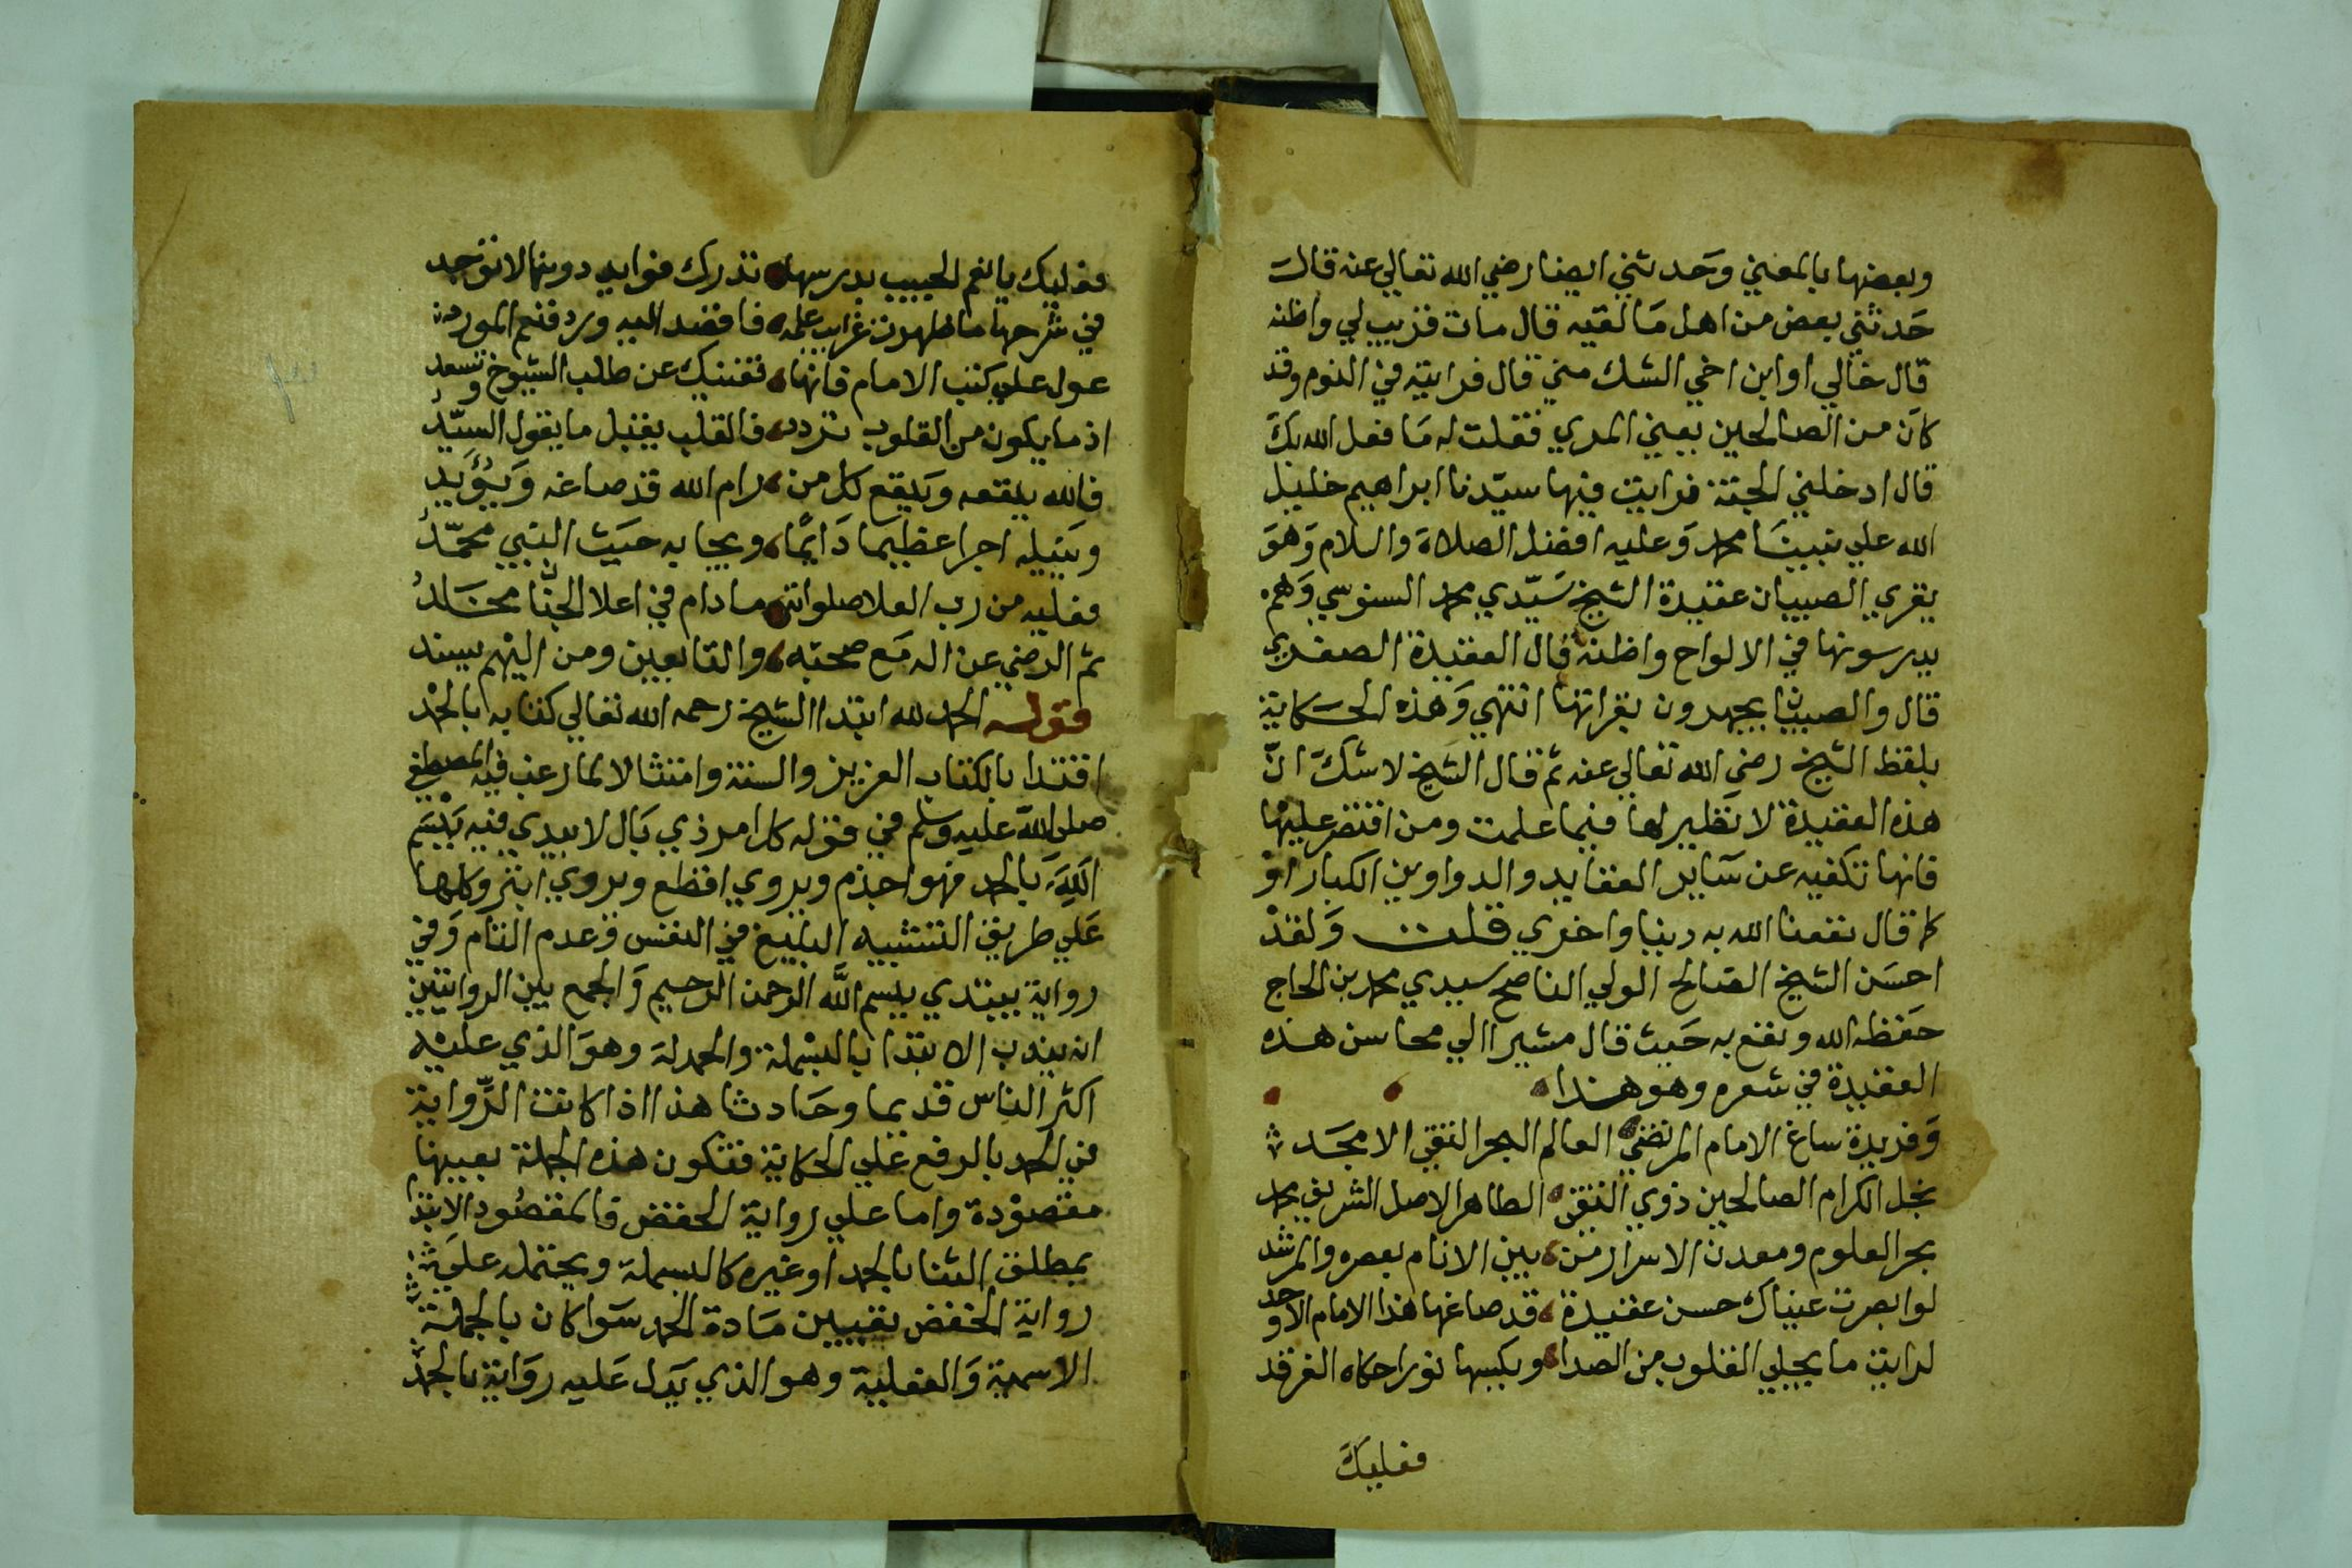 وبعضها بالمعني وحدثني ايضا رضي الله تعالي عنه قال
حدثني بعض من اهل مالقيه قال مات قريب لي واظنه
قال خالي او ابن اخي الشك مني قال فرايته في النوم وقد
كان من الصالحين يعني المري فقلت له ما فعل الله بك
قال ادخلني الجنة فرايت فيها سيدنا ابراهيم خليل
الله علي نبينا محمد وعليه افضل الصلاة والسلام وهو
يقري الصبيان عقيدة الشيخ سيدي محمد السنوسي وهم
يدرسونها في الالواح واظنه قال العقيدة الصغري
قال والصبيان يجهرون بقراتها انتهي وهذه الحكاية
بلفظ الشيخ رضي الله تعالي عنه ثم قال الشيخ لا شك ان
هذه العقيدة لا نظير لها فيما علمت ومن اقتصر عليها
فانها تكفيه عن ساير العقايد والدواوين الكبار او
كما قال نفعنا الله به دينا واخري قلت ولقد
احسن الشيخ الصالح الولي الناصح سيدي محمد بن الحاج
حفظه الله ونفع به حيث قال مشيرا الي محاسن هذه
العقيدة في شعره وهو هذا
وفريدة ساغ الامام المرتضي العالم البحر التقي الامجد
نجل الكرام الصالحين ذوي التقي الطاهر الاصل الشريف محمد
بحر العلوم ومعدن الاسرار من بين الانام بعصره والمرشد
لو ابصرت عيناك حسن عقيدة قد صاغها هذا الامام الاوحد
لرايت ما يجلي القلوب من الصدا ويكسبها نورا حكاه الفرقد
فعليك
فعليك يا نعم الحبيب بدرسها تدرك فوايد دونها لا توجد
في شرحها ما ظهرت غرايب علمه فاقصد اليه ورد فنعم المورد
عول علي كتب الامام فانها تغنيك عن طلب الشيوخ وتسعد
اذ ما يكون من القلوب تردد فالقلب يقبل ما يقول السيد
فالله ينفعه وينفع كل من رام الله قد صاغه ويؤيد
وينيله اجرا عظيما دايما ويحيا به حيث النبي محمد
فعليه من رب العلا صلواته ما دام في اعلا الجنان مخلد
ثم الرضي عن اله مع صحبه والتابعين ومن اليهم يسند
قوله الحمد لله ابتدا الشيخ رحمه الله تعالي كتابه بالحمد
اقتدا بالكتاب العزيز والسنة وامتثالا لما رغب فيه المصطفي
صلى الله عليه وسلم في قوله كل امر ذي بال لا يبدي فيه بسم
الله بالحمد فهو اجذم ويروي اقطع ويروي ابتر وكلها
علي طريق التشبيه البليغ في النقص وعدم التام وفي
رواية يبتدي ببسم الله الرحمن الرحيم والجمع بين الروايتين
ان يندب الابتدا بالبسملة والحمدلة وهو الذي عليه
اكثر الناس قديما وحادثا هذا اذا كانت الرواية
في الحمد بالرفع علي الحكاية فتكون هذه الجملة بعينها
مقصودة واما علي رواية الخفض فالمقصود الابتدا
بمطلق الثنا بالحمد او غيره كالبسملة ويحتمل علي
رواية الخفض تعيين مادة الحمد سوا كان بالجملة
الاسمية والفعلية وهو الذي يدل عليه رواية بالحمد